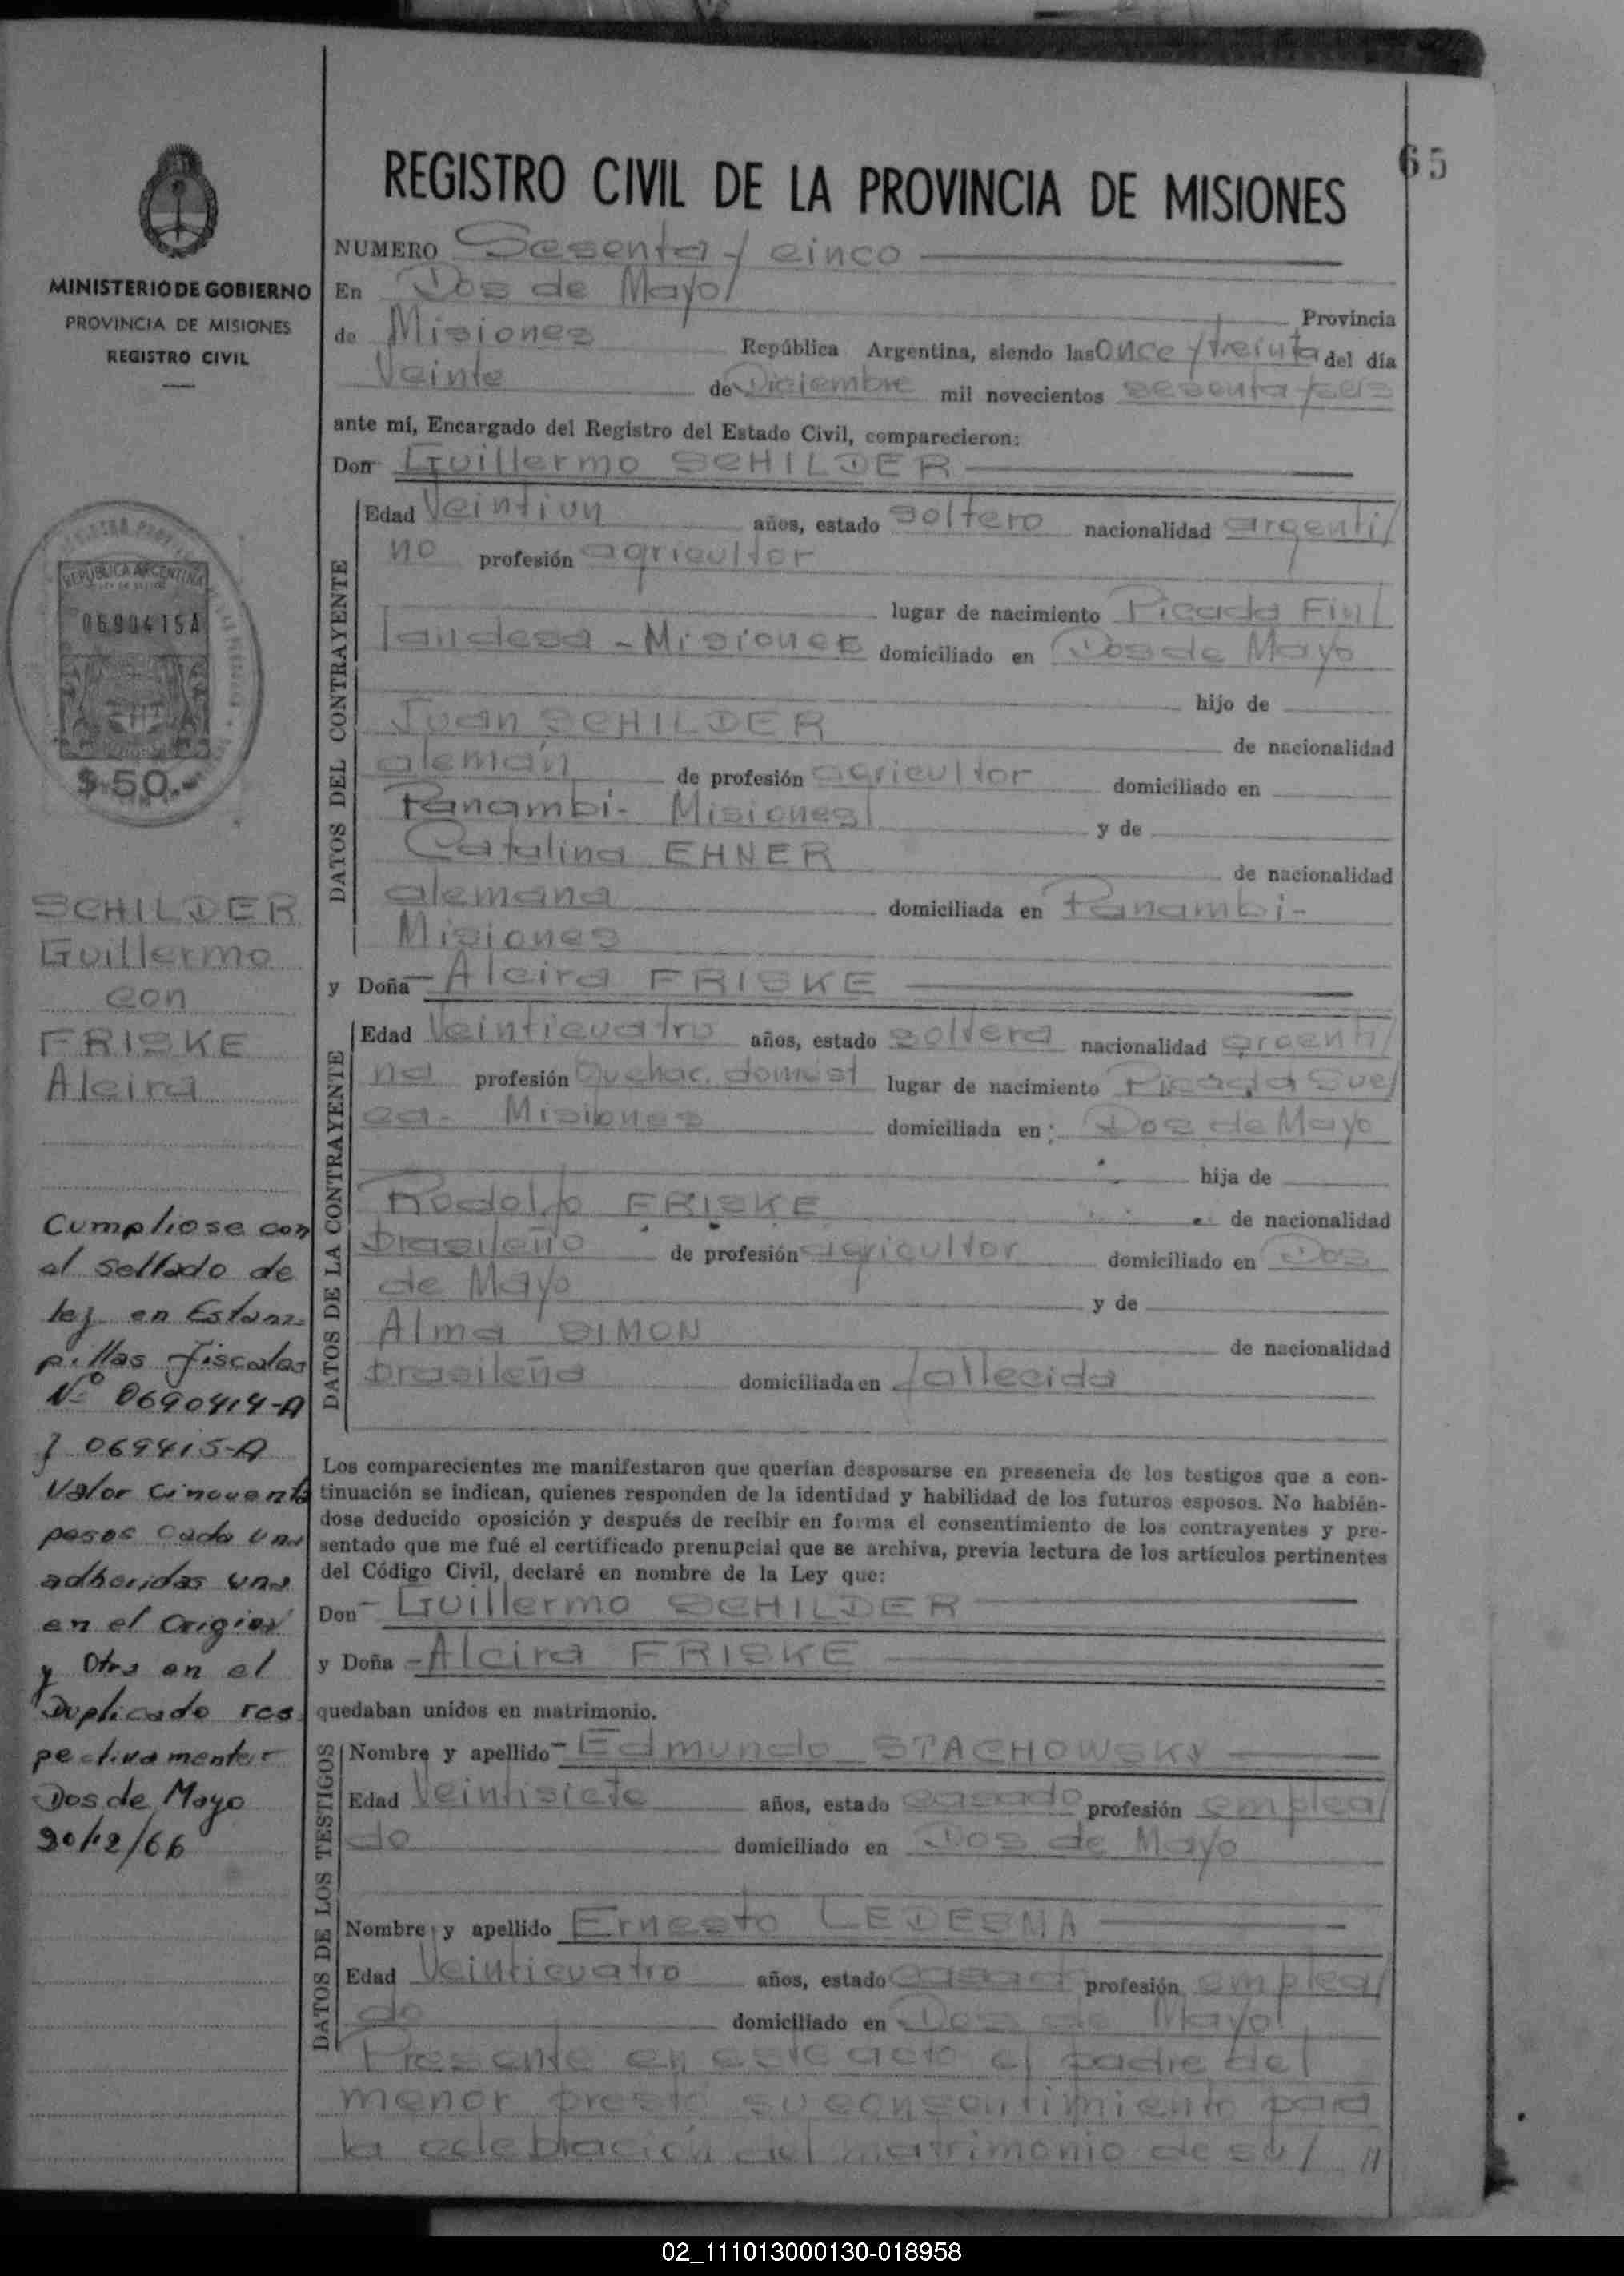 65
REGISTRO CIVIL DE LA PROVINCIA DE MISIONES
MINISTERIO DE GOBIERNO
PROVINCIA DE MISIONES
REGISTRO CIVIL
NUMERO Sesenta y cinco
En Dos de Mayo/
Provincia
de Misiones República Argentina, siendo las Once y treinta del día
Veinte de Diciembre mil novecientos sesenta y seis
ante mí, Encargado del Registro del Estado Civil, comparecieron:
Don Guillermo SCHILDER
DATOS DEL CONTRAYENTE
Edad Veintiun años, estado soltero nacionalidad argenti/
no profesión agricultor
lugar de nacimiento Picada Fin/
landesa - Misiones domiciliado en Dos de Mayo
hijo de
Juan SCHILDER
de nacionalidad
alemán de profesión agricultor domiciliado en
Panambi- Misiones/ y de
Catalina EHNER
de nacionalidad
alemana domiciliada en Panambi-
Misiones
y Doña Alcira FRISKE
DATOS DE LA CONTRAYENTE
Edad Veinticuatro años, estado soltera nacionalidad argenti/
na profesión Quehac. domest lugar de nacimiento Picada Sue/
ca- Misiones domiciliada en: Dos de Mayo
hija de
Rodolfo FRISKE
de nacionalidad
brasileño de profesión agricultor domiciliado en Dos
de Mayo y de
Alma SIMON
de nacionalidad
brasileña domiciliada en fallecida
Los comparecientes me manifestaron que querían desposarse en presencia de los testigos que a con-
tinuación se indican, quienes responden de la identidad y habilidad de los futuros esposos. No habién-
dose deducido oposición y después de recibir en forma el consentimiento de los contrayentes y pre-
sentado que me fué el certificado prenupcial que se archiva, previa lectura de los artículos pertinentes
del Código Civil, declaré en nombre de la Ley que:
Don Guillermo SCHILDER
y Doña Alcira FRISKE
quedaban unidos en matrimonio.
DATOS DE LOS TESTIGOS
Nombre y apellido Edmundo STACHOWSKY
Edad Veintisiete años, estado casado profesión emplea/
do domiciliado en Dos de Mayo
Nombre y apellido Ernesto LEDESMA
Edad Veinticuatro años, estado casad profesión emplea/
do domiciliado en Dos de Mayo/
Presente en este acto el padre del
menor presta su consentimiento para
la celebración del matrimonio de su/ //
REPUBLICA ARGENTINA
0690415A
$ 50.-
SCHILDER
Guillermo
con
FRISKE
Alcira
Cumpliose con
el sellado de
ley en Estam-
pillas fiscales
Nº 0690414-A
y 069415-A
Valor Cincuenta
pesos cada una
adheridas una
en el Original
y Otra en el
Duplicado res
pectivamente-
Dos de Mayo
20/12/66
02_111013000130-018958